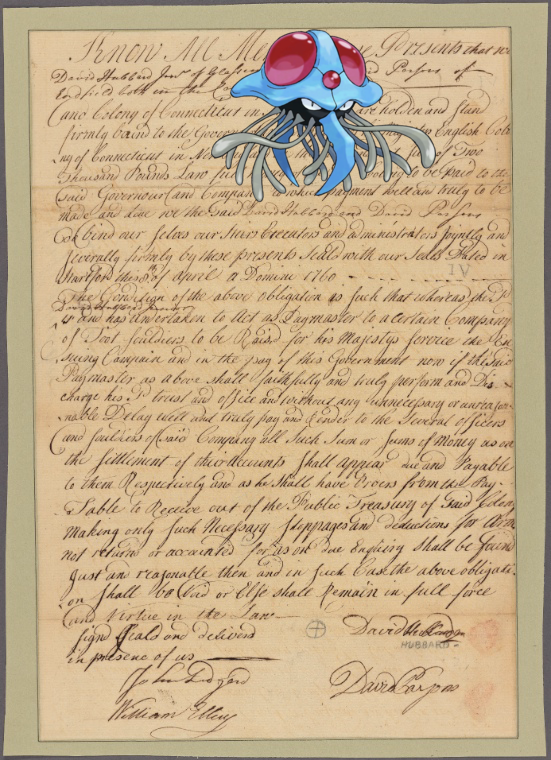 Know All Men Presents that we
David Hubbard Junr of and Parsons of
Endfield both in the
and Colony of Connecticut in are holden and Stan
firmly bound to the Gover English Colo
ny of Connecticut in New of Two
Thousand Pounds Law to be paid to the
Said Governour and Company which payment well and truly to be
made and done we the Said David Hubbard and David Parsons
bind our selves our Heirs Executors and administrators Joyntly and
severally firmly by these presents Seald with our Seals Dated in
Hartford this 8th of April a Domine 1760
IV
The Condision of the above obligation is such that whereas the Sd
David Hubbard Junior
and has undertaken to Act as Paymaster to a certain Company
of Foot Souldiers to be Raisd for his Majestys service the En
suing Campain and in the pay of this Government now if the Said
Paymaster as above shall faithfully and truly perform and Dis
charge his Sd trust and office and without any unnecessary or unreaso
nable Delay well and truly pay and tender to the Several officers
and souldiers of Said Company all Such Sum or Sums of Money as on
the Settlement of their accounts Shall appear due and Payable
to them Respectively and as he Shall have orders from the Pay-
Table to Receive out of the Public Treasury of Said Colony
making only such Necessary stoppages and deductions for Arms
not returnd or accounted for as on due Enquiry shall be found
Just and reasonable then and in such Case the above obligati-
on Shall be Void or Else shall Remain in full force
and Virtue in the Law
Signd Seald and deliverd
in presence of us
David Hubbard
HUBBARD
John Ledyard
David Parsons
William Ellery